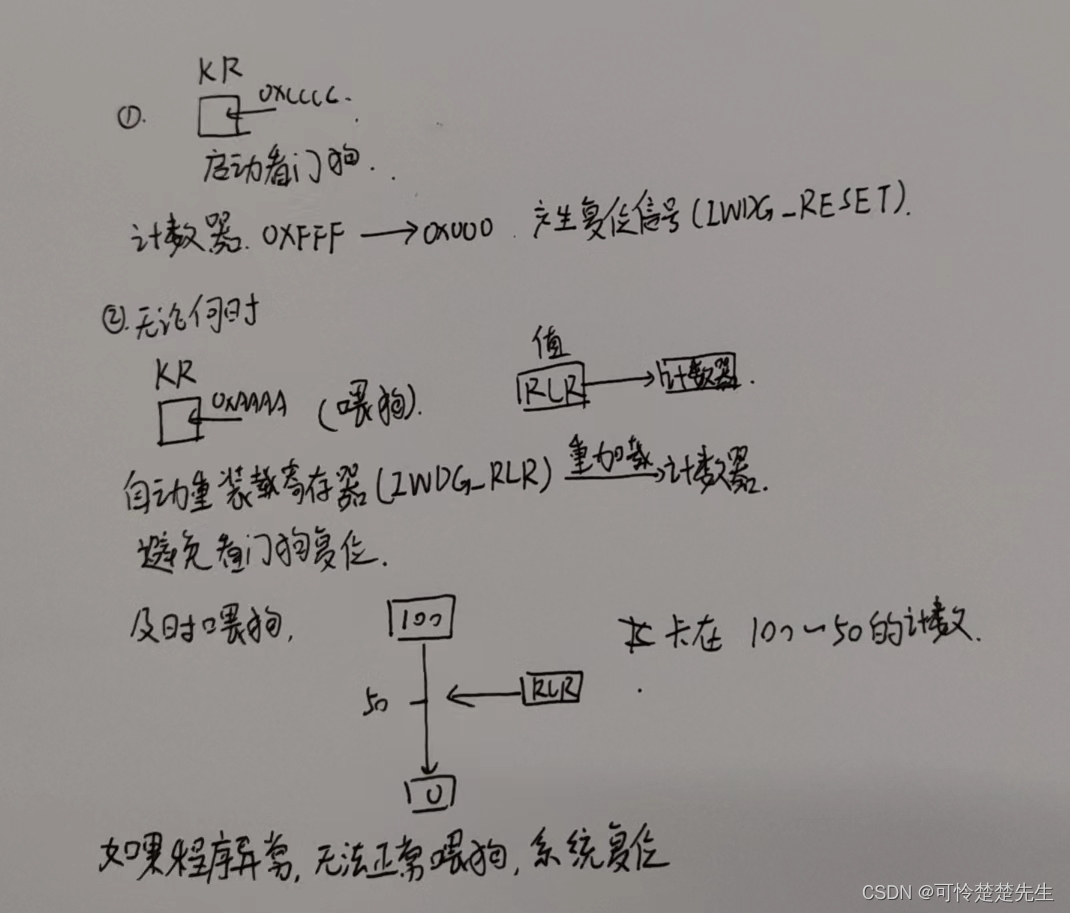 KR
①. 0XCCCC.
启动看门狗..
计数器. 0XFFF → 0X000. 产生复位信号(IWDG_RESET).
②.无论何时
值
KR
RLR → 计数器.
0XAAAA (喂狗).
自动重装载寄存器(IWDG_RLR) 重加载 计数器.
避免看门狗复位.
及时喂狗, 100
卡在 100~50的计数.
50 RLR
0
如果程序异常,无法正常喂狗,系统复位
CSDN @可怜楚楚先生